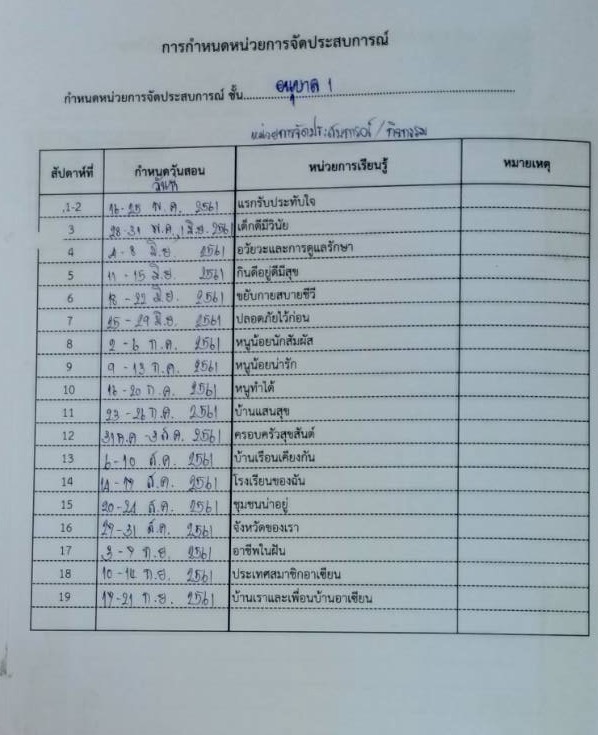 การกำหนดหน่วยการจัดประสบการณ์
กำหนดหน่วยการจัดประสบการณ์ ชั้น อนุบาล 1
หน่วยการจัดประสบการณ์ / กิจกรรม
สัปดาห์ที่ กำหนดวันสอน หน่วยการเรียนรู้ หมายเหตุ
วันที่
1-2 16-25 พ.ค. 2561 แรกรับประทับใจ
3 28-31 พ.ค., 1 มิ.ย. 2561 เด็กดีมีวินัย
4 4-8 มิ.ย. 2561 อวัยวะและการดูแลรักษา
5 11-15 มิ.ย. 2561 กินดีอยู่ดีมีสุข
6 18-22 มิ.ย. 2561 ขยับกายสบายชีวี
7 25-29 มิ.ย. 2561 ปลอดภัยไว้ก่อน
8 2-6 ก.ค. 2561 หนูน้อยนักสัมผัส
9 9-13 ก.ค. 2561 หนูน้อยน่ารัก
10 16-20 ก.ค. 2561 หนูทำได้
11 23-26 ก.ค. 2561 บ้านแสนสุข
12 31 ก.ค. -3 ส.ค. 2561 ครอบครัวสุขสันต์
13 6-10 ส.ค. 2561 บ้านเรือนเคียงกัน
14 ส.ค. 2561 โรงเรียนของฉัน
15 20-24 ส.ค. 2561 ชุมชนน่าอยู่
16 -31 ส.ค. 2561 จังหวัดของเรา
17 3-7 ก.ย. 2561 อาชีพในฝัน
18 10-14 ก.ย. 2561 ประเทศสมาชิกอาเซียน
19 17-21 ก.ย. 2561 บ้านเราและเพื่อนบ้านอาเซียน